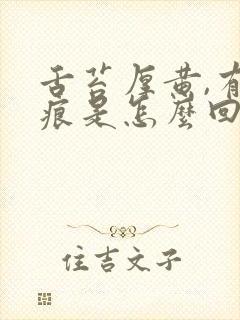 舌苔厚黄,有
痕是怎麽回
住吉文子